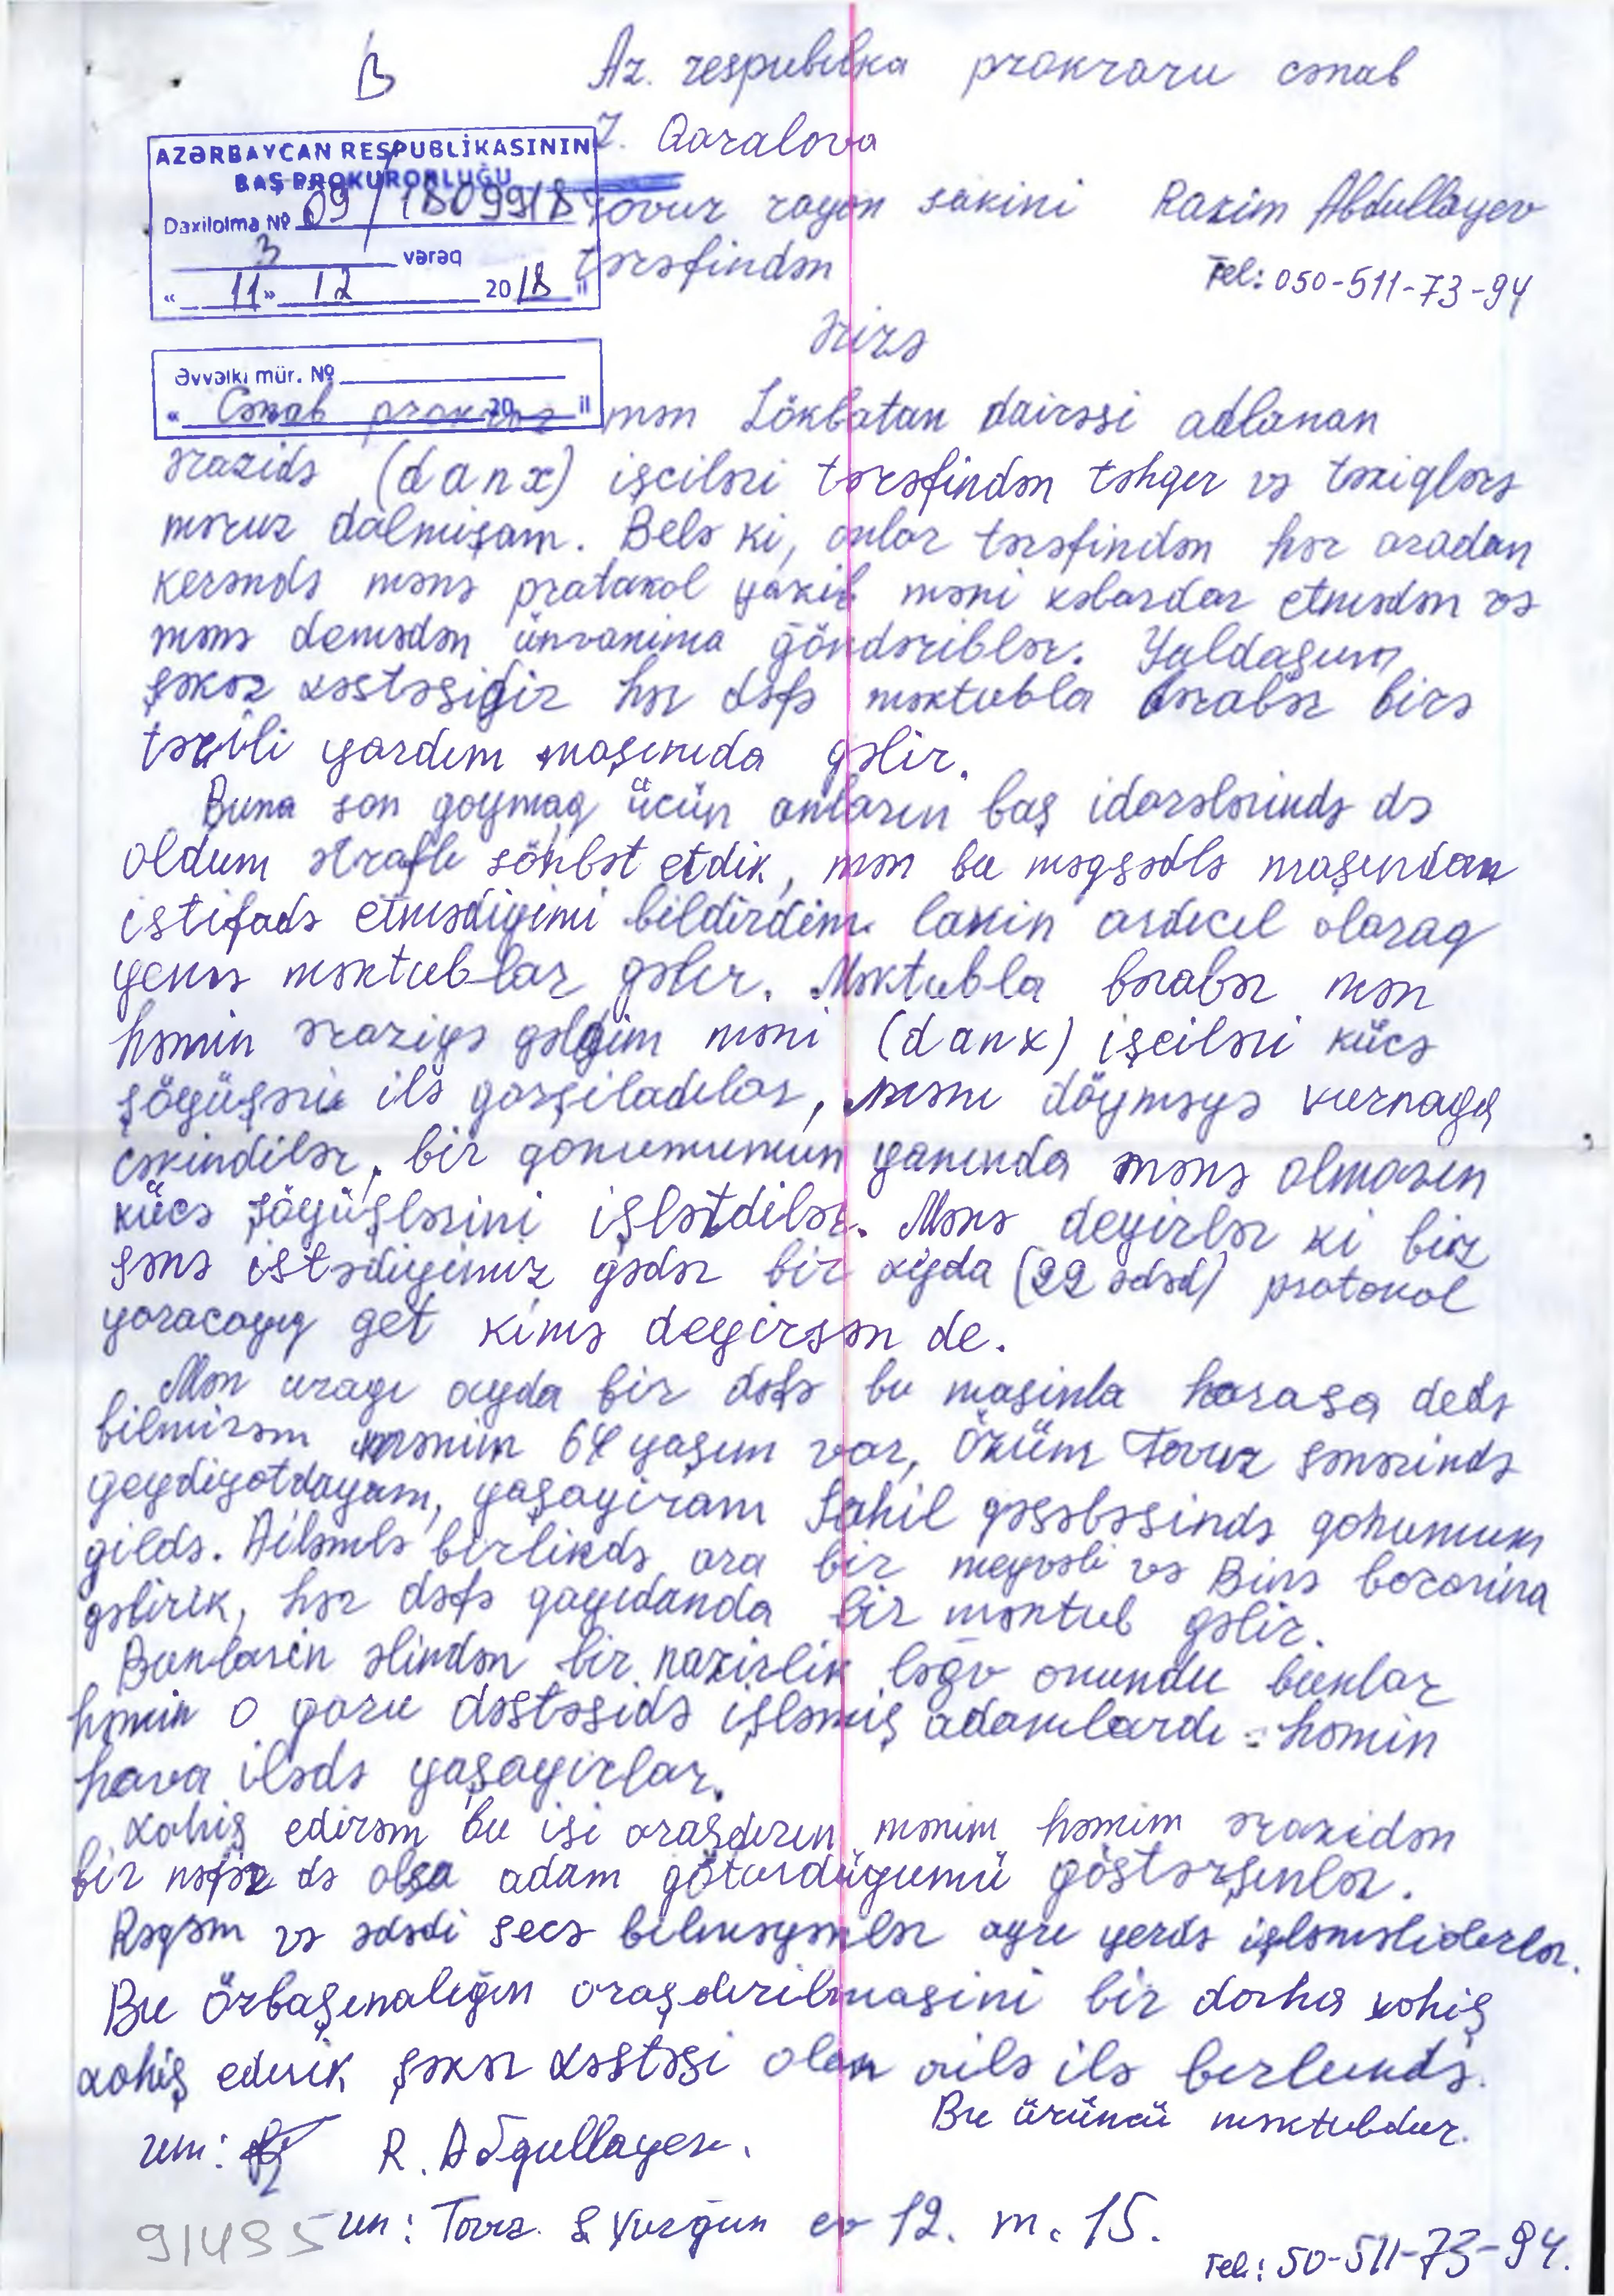 B
Az. respubilka prokroru cənab
Z. Qaralova
AZƏRBAYCAN RESPUBLİKASININ
BAŞ PROKURORLUĞU
Daxilolma № 09/18099/18
3 vərəq
« 11 » 12 2018 il
Tovuz rayon sakini Razim Abdullayev
tərəfindən
Tel: 050-511-73-94
Ərizə
Əvvəlki mür. №
« 20 il
Cənab prokror mən Lökbatan dairəsi adlanan
ərazidə (danx) işciləri tərəfindən təhqer və təziqlərə
məruz dalmışam. Belə ki, onlar tərəfindən hər aradan
kerəndə mənə pratakol yazib məni xəbardar etmədən və
mənə demədən ünvanima göndəriblər. Yaldaşım
şəkər xəstəsidir hər dəfə məktubla bərabər birə
təcili yardım maşınıda gəlir.
Buna son qoymaq ücün onların baş idarələrində də
oldum ətraflı söhbət etdik, mən bu məqşədlə maşından
istifadə etmədiyimi bildirdim lakin ardıcıl olaraq
yenə məktublar gəlir. Məktubla bərabər mən
həmin əraziyə gəldim məni (danx) işciləri kücə
şöyüşəri ilə qarşiladılar, məni döyməyə vurmağa
cəkindilər, bir qonumumun yanında mənə olmazın
kücə şöyüşlərini işlətdilər. Mənə deyirlər ki biz
şənə istədiyimiz qədər bir ayda (22 ədəd) protokol
yazacayıq get kimə deyirsən de.
Mən uzağı ayda bir dəfə bu maşinla haraşa dedə
bilmirəm mənim 64 yaşım var, Özüm Tovuz şəhərində
qeydiyatdayam, yaşayiram Sahil qəşəbəşində qohumum
gildə. Ailəmlə birlikdə ara bir meyvəli və Binə bazarina
gəlirik, hər dəfə qayıdanda bir məktub gəlir.
Bunların əlindən bir nazirlik ləğv onundu bunlar
həmin o qoru dəstəsidə işləmiş adamlardı həmin
hava ilədə yaşayirlar.
Xahiş edirəm bu işi araşdırın mənim həmim ərazidən
bir nəfər də olşa adam götürdüğümü göstərşinlər.
Rəqəm və ədədi secə bilməyənlər ayrı yerdə işləməlidərlər.
Bu özbaşınalığın araşdırılmaşini bir daha xohiş
xohiş edirik şəkər xəstəşi olan ailə ilə berləundə.
Bu üzüncü məktubdur.
R. Abdullayev.
un: Tovz. S Vurğun ev 12. m. 15.
91495
Tel: 50-511-73-94.